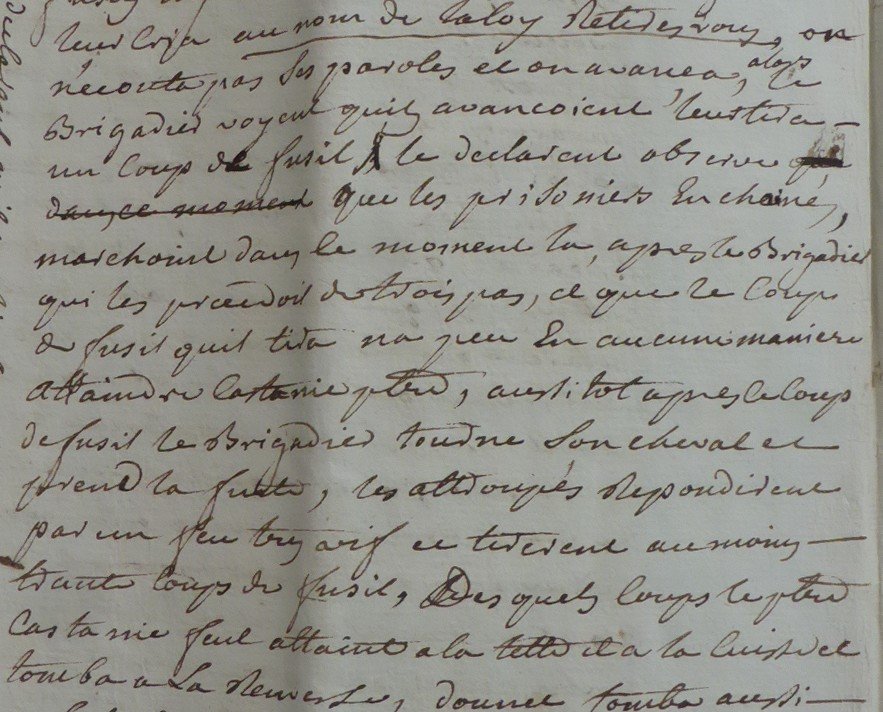 leur cria au nom de la loy Retirés vous, on
n'ecouta pas ses paroles et on avanca, alors le
Brigadier voyant quils avancoient leur tira —
un Coup de fusil, le declarent observe que
dans ce moment que les prisoniers Enchainés,
marchoint dans le moment la, apres le Brigadier
qui les précedoit de trois pas, et que le Coup
de fusil quil tira na peu En aucune maniere
attaindre Castanie pbtre, aussitot apres le Coup
de fusil le Brigadier tourne son cheval et
prend la fuite, les attroupés Repondirent
par un feu tres vif et tirerent au moins —
trante Coups de fusil, Desquels Coups le pbtre
Castanie feut attaint a la tette et a la Cuisse et
tomba a La Renverse, tomba aussi —